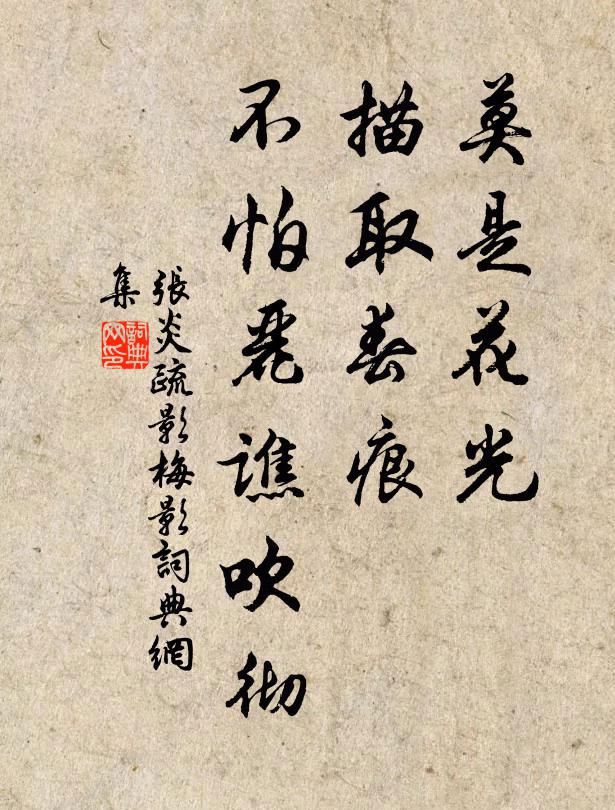 莫是花光
描取春痕
不怕麗譙吹彻
張炎疏影梅影詞典網
集
詞典網